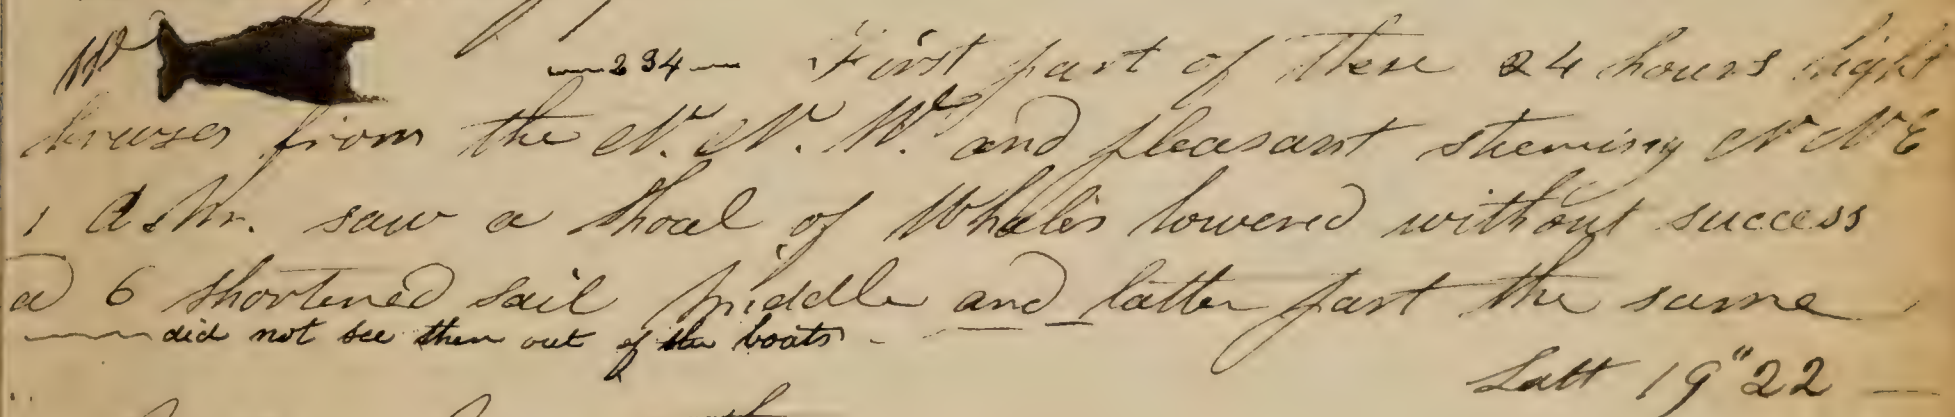 Wd —234— First part of these 24 hours light
breezes from the N. N. Wd and pleasant steering N N E
1 saw a shoal of Whales lowered without success
a 6 shortened sail middle and latter part the same
did not see them out of the boats
Latt 19"22